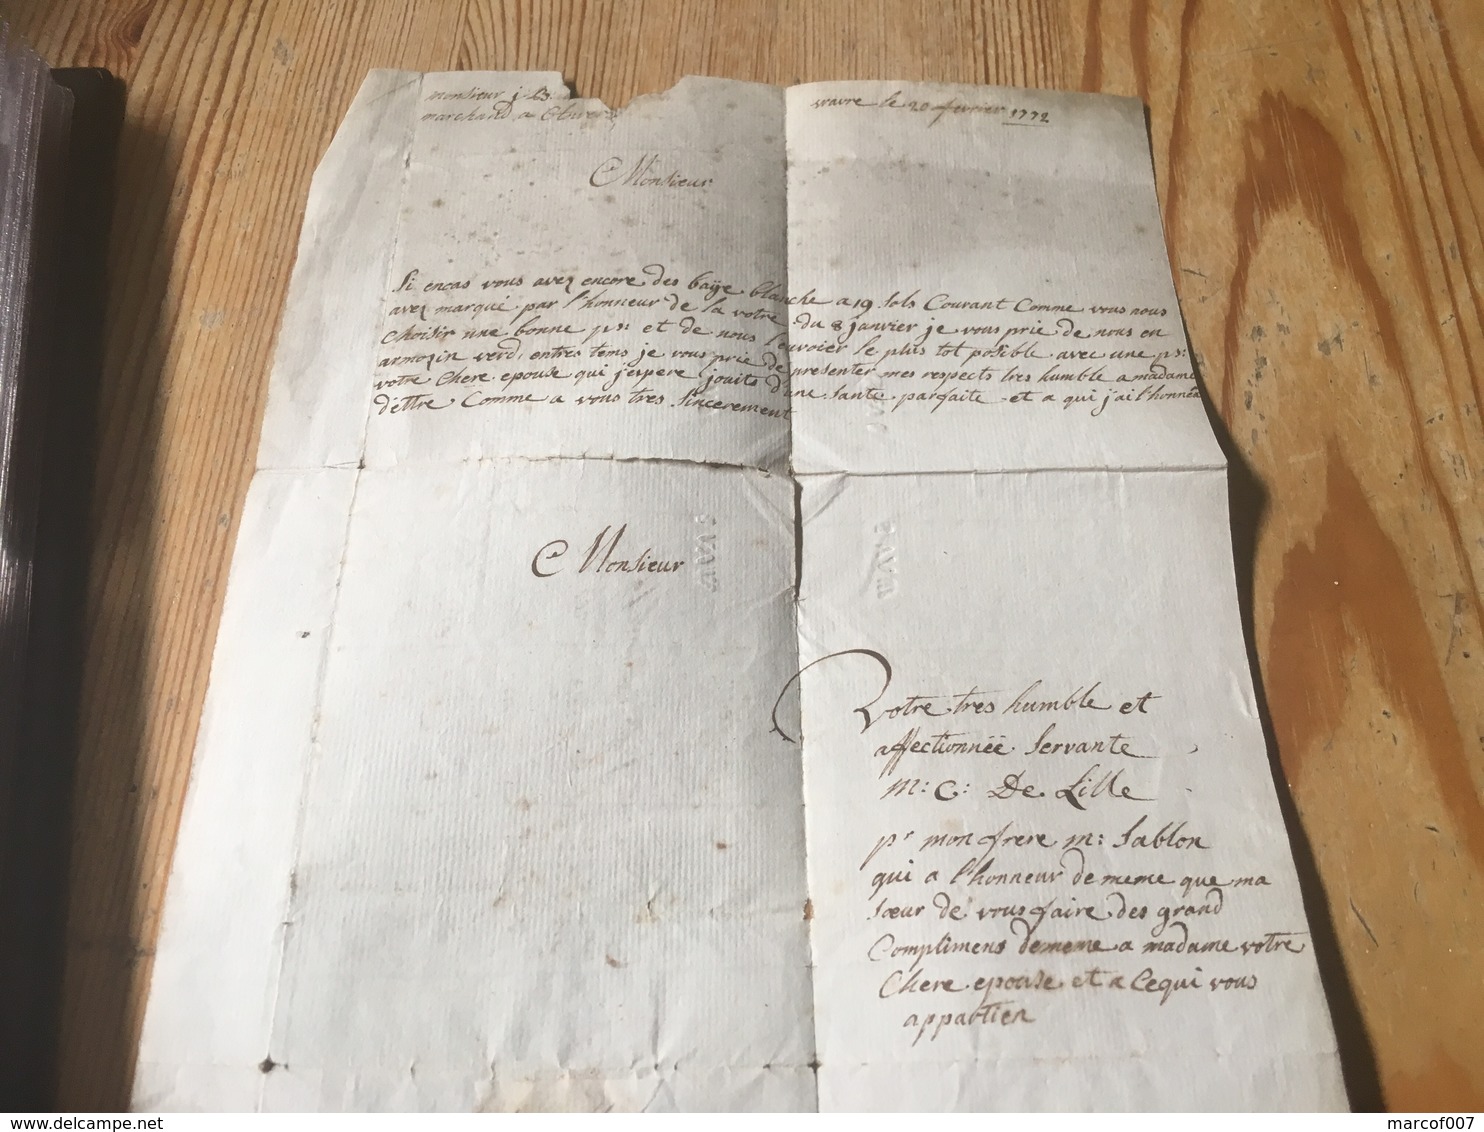 monsieur j
marchand a
wavre le 20 fevrier 1772
Monsieur
Si encas vous avez encore des baÿe blanche a 19 sols Courant Comme vous nous
avez marqué par l'honneur de la votre du 8 janvier je vous prie de nous en
Choisir une bonne ps: et de nous l'envoier le plus tot posible avec une ps:
armozin verd, entres tems je vous prie de presenter mes respects tres humble a madame
votre Chere epouse qui j'espere jouits d'une sante parfaite et a qui j'ai l'honneur
d'ettre Comme a vous tres sincerement
Monsieur
WAVRE
WAVRE
votre tres humble et
affectionnéë servante
m: C: De Lille
pr mon frere m: Sablon
qui a l'honneur de meme que ma
sœur de vous faire des grand
Complimens de meme a madame votre
Chere epouse et a Cequi vous
appartien
delcampe.net
marcof007